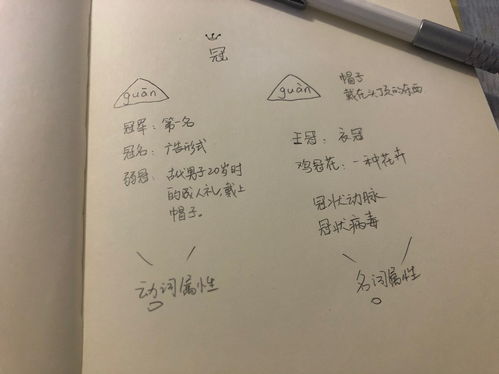 冠
guān
冠军：第一名
冠名：广告形式
弱冠：古代男子20岁时
的成人礼，戴上
帽子。
动词属性
guàn
帽子
戴在头顶的东西
王冠：衣冠
鸡冠花：一种花卉
冠状动脉
冠状病毒
名词属性